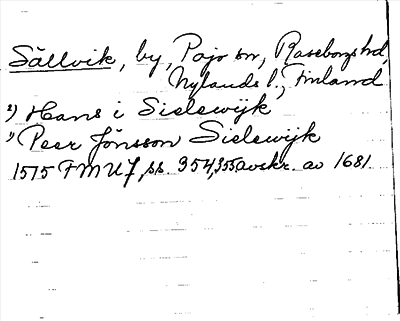 Sällvik, by, Pojo sn, Raseborgs hd,
Nylands l., Finland
2) Hans i Sielswijk
1) Peer Jönsson Sielswijk
1575 FMU 7, ss. 354, 355 avskr. av 1681.